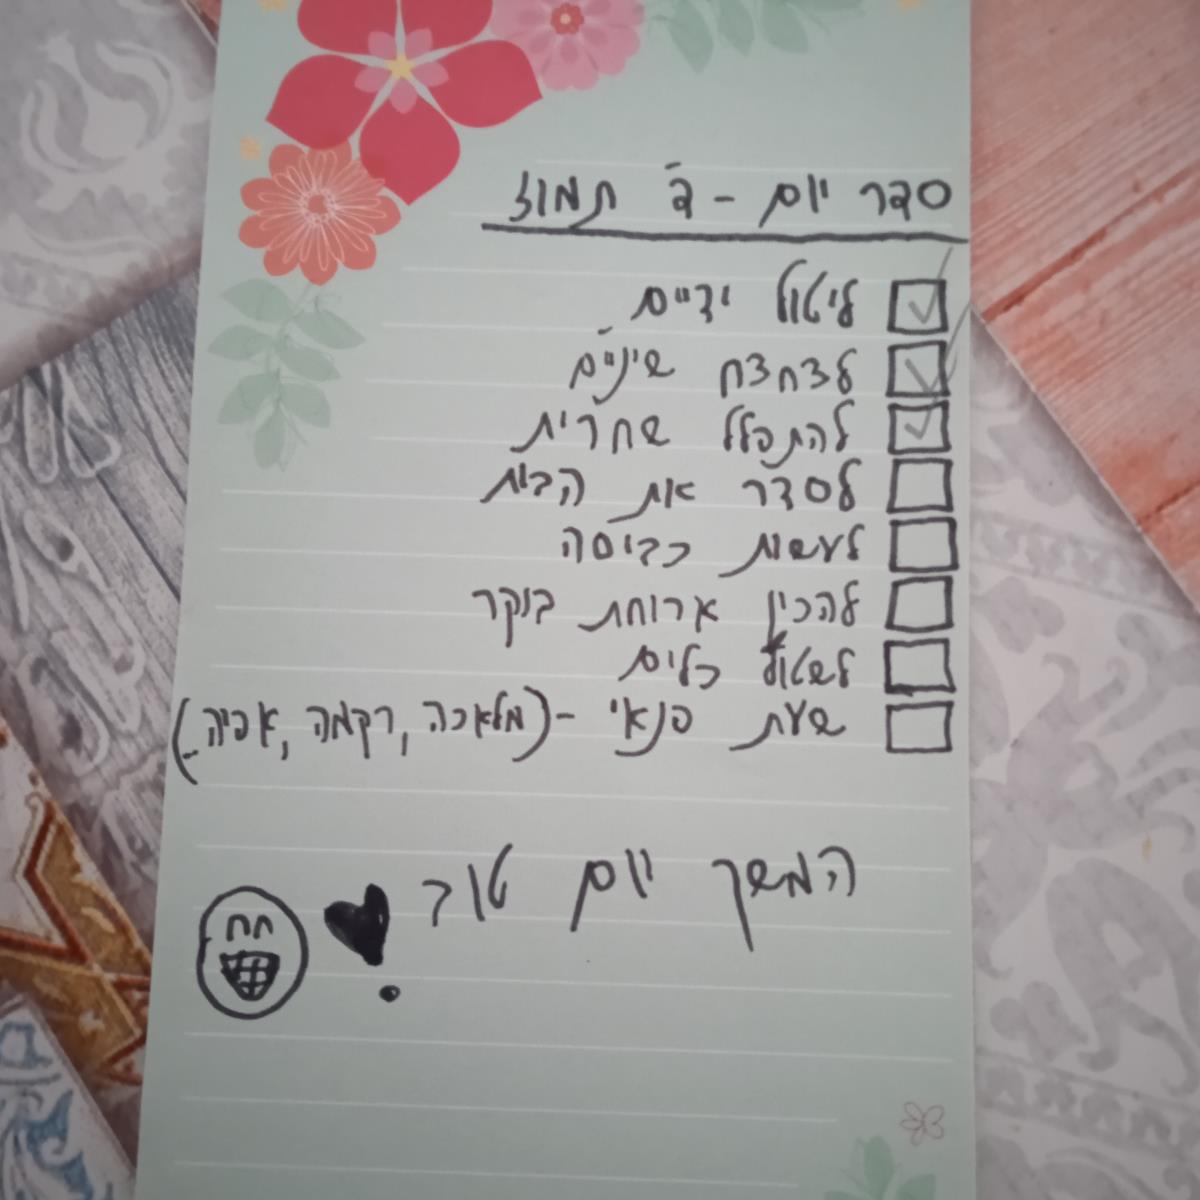 סדר יום - ב' תמוז
ליטול ידיים
לצחצח שיניים
להתפלל שחרית
לסדר את הבית
לעשות כביסה
להכין ארוחת בוקר
לשטוף כלים
שעת פנאי - (מלאכה, רקמה, אפיה..)
המשך יום טוב